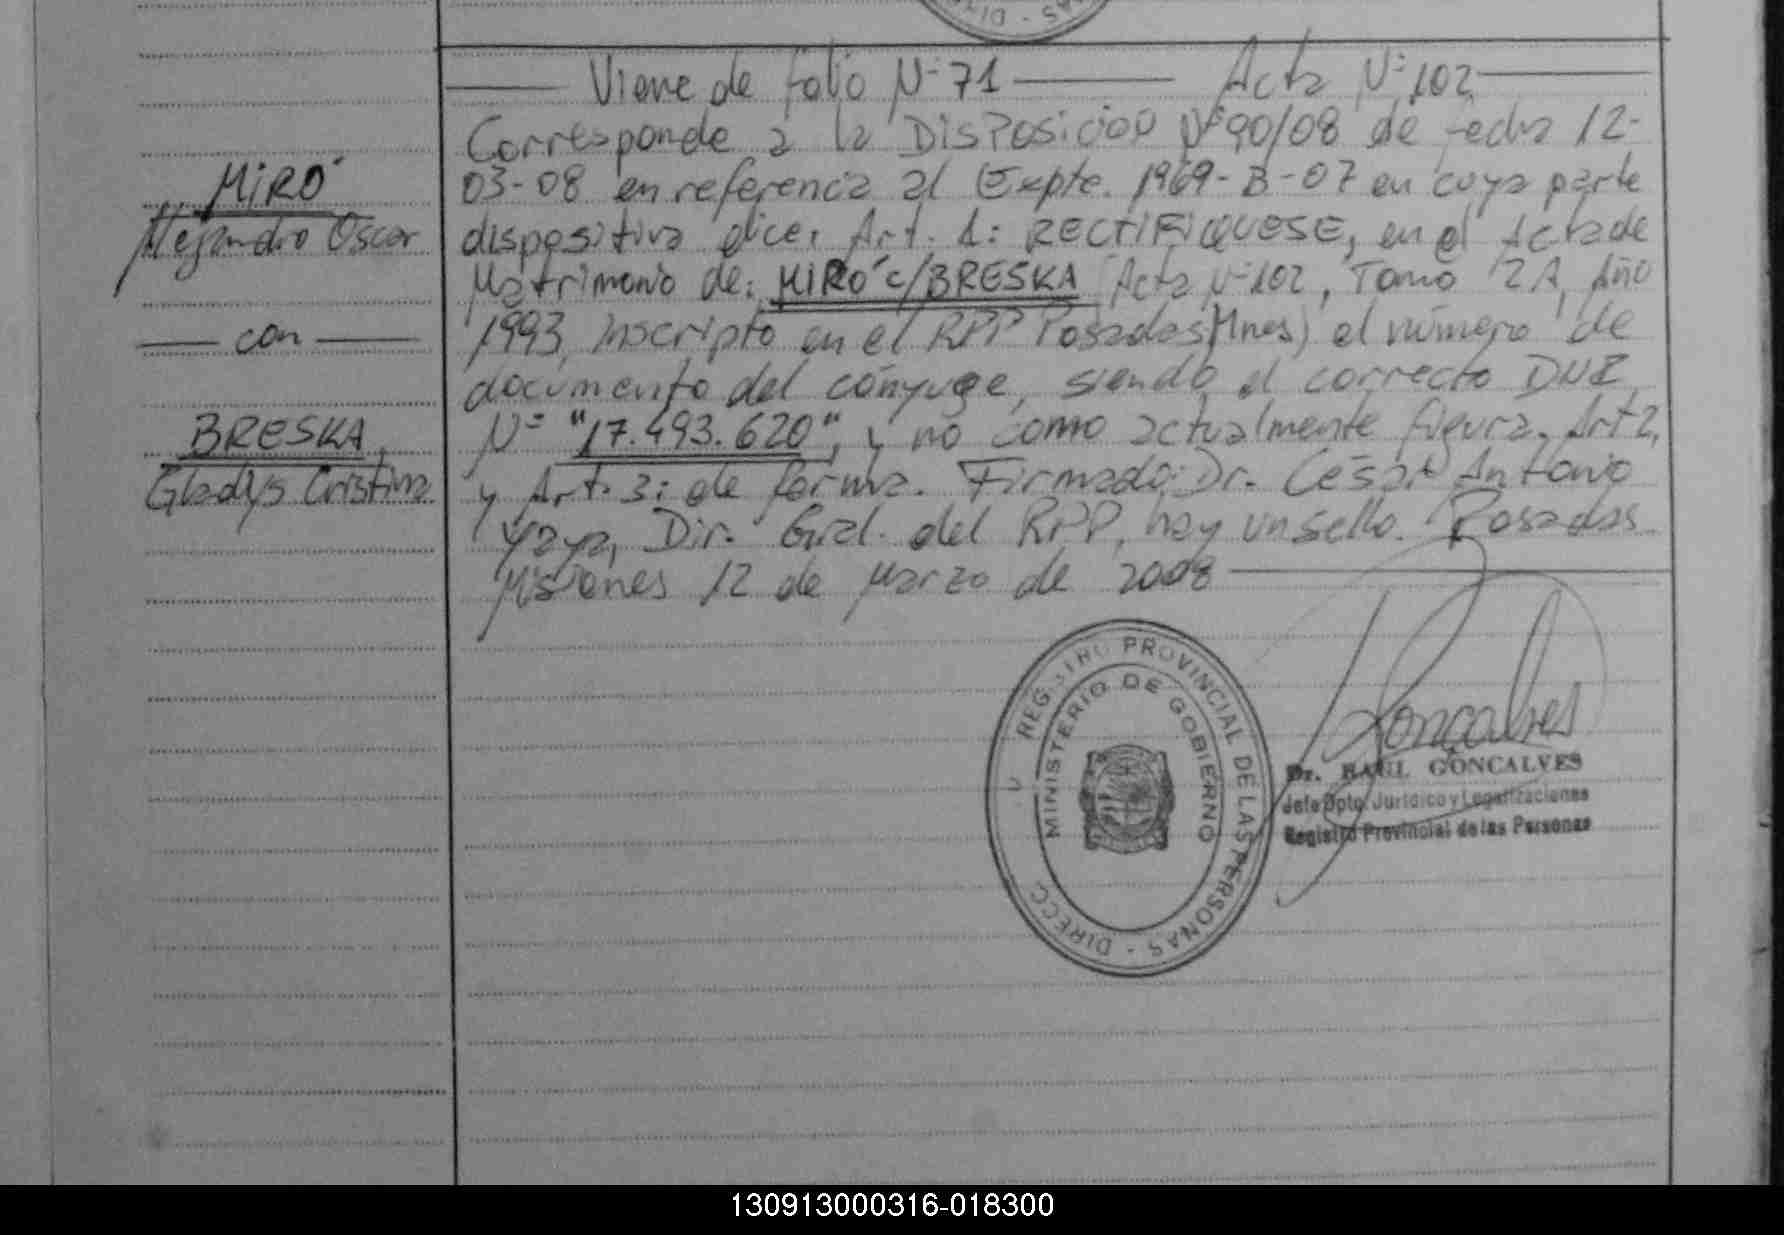 Viene de folio Nº 71 Acta Nº 102
MIRÓ
Alejandro Oscar
con
BRESKA,
Gladys Cristina
Corresponde a la Disposicion Nº 90/08 de fecha 12-
03-08 en referencia al Expte. 1969-B-07 en cuya parte
dispositiva dice: Art. 1: RECTIFIQUESE, en el Acta de
Matrimonio de: MIRÓ c/BRESKA Acta Nº 102, Tomo 2A, Año
1993, Inscripto en el RPP Posadas (Mnes) el número de
documento del cónyuge, siendo el correcto DNI
Nº "17.493.620", y no como actualmente figura. Art 2,
y Art. 3: de forma. Firmado: Dr. César Antonio
Yaya, Dir. Gral. del RPP, hay un sello. Posadas
Misiones 12 de Marzo de 2008
REGISTRO PROVINCIAL DE LAS PERSONAS - DIRECC
MINISTERIO DE GOBIERNO
Goncalves
Dr. RAUL GONCALVES
Jefe Dpto. Jurídico y Legalizaciones
Registro Provincial de las Personas
130913000316-018300